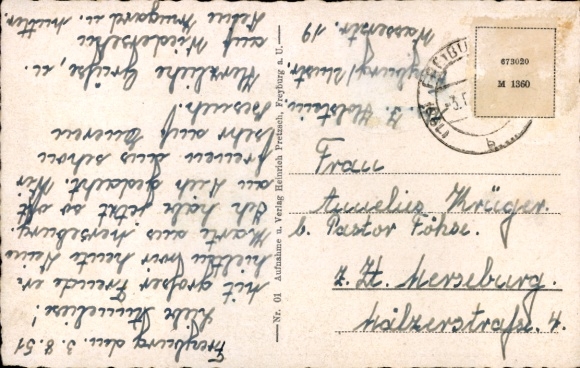 Freyburg den. 3. 8. 51
Liebe Annelies!
Mit großer Freude er
hielten wir heute Deine
Karte aus Merseburg.
Ich habe jetzt so oft
an Dich gedacht. Wir
freuen uns schon
sehr auf Eueren
Besuch.
Herzliche Grüße, u.
auf Wiedersehn
Deine Irmgard u. Mutter
z. Z. Holstein
Freyburg/Unstr.
Wasserstr. 19
Nr. 01 Aufnahme u. Verlag Heinrich Pretzsch, Freyburg a. U.
673020
M 1360
Frau
Annelies Krüger.
b. Pastor Föhse.
z. Zt. Merseburg.
Mälzerstraße. 4.